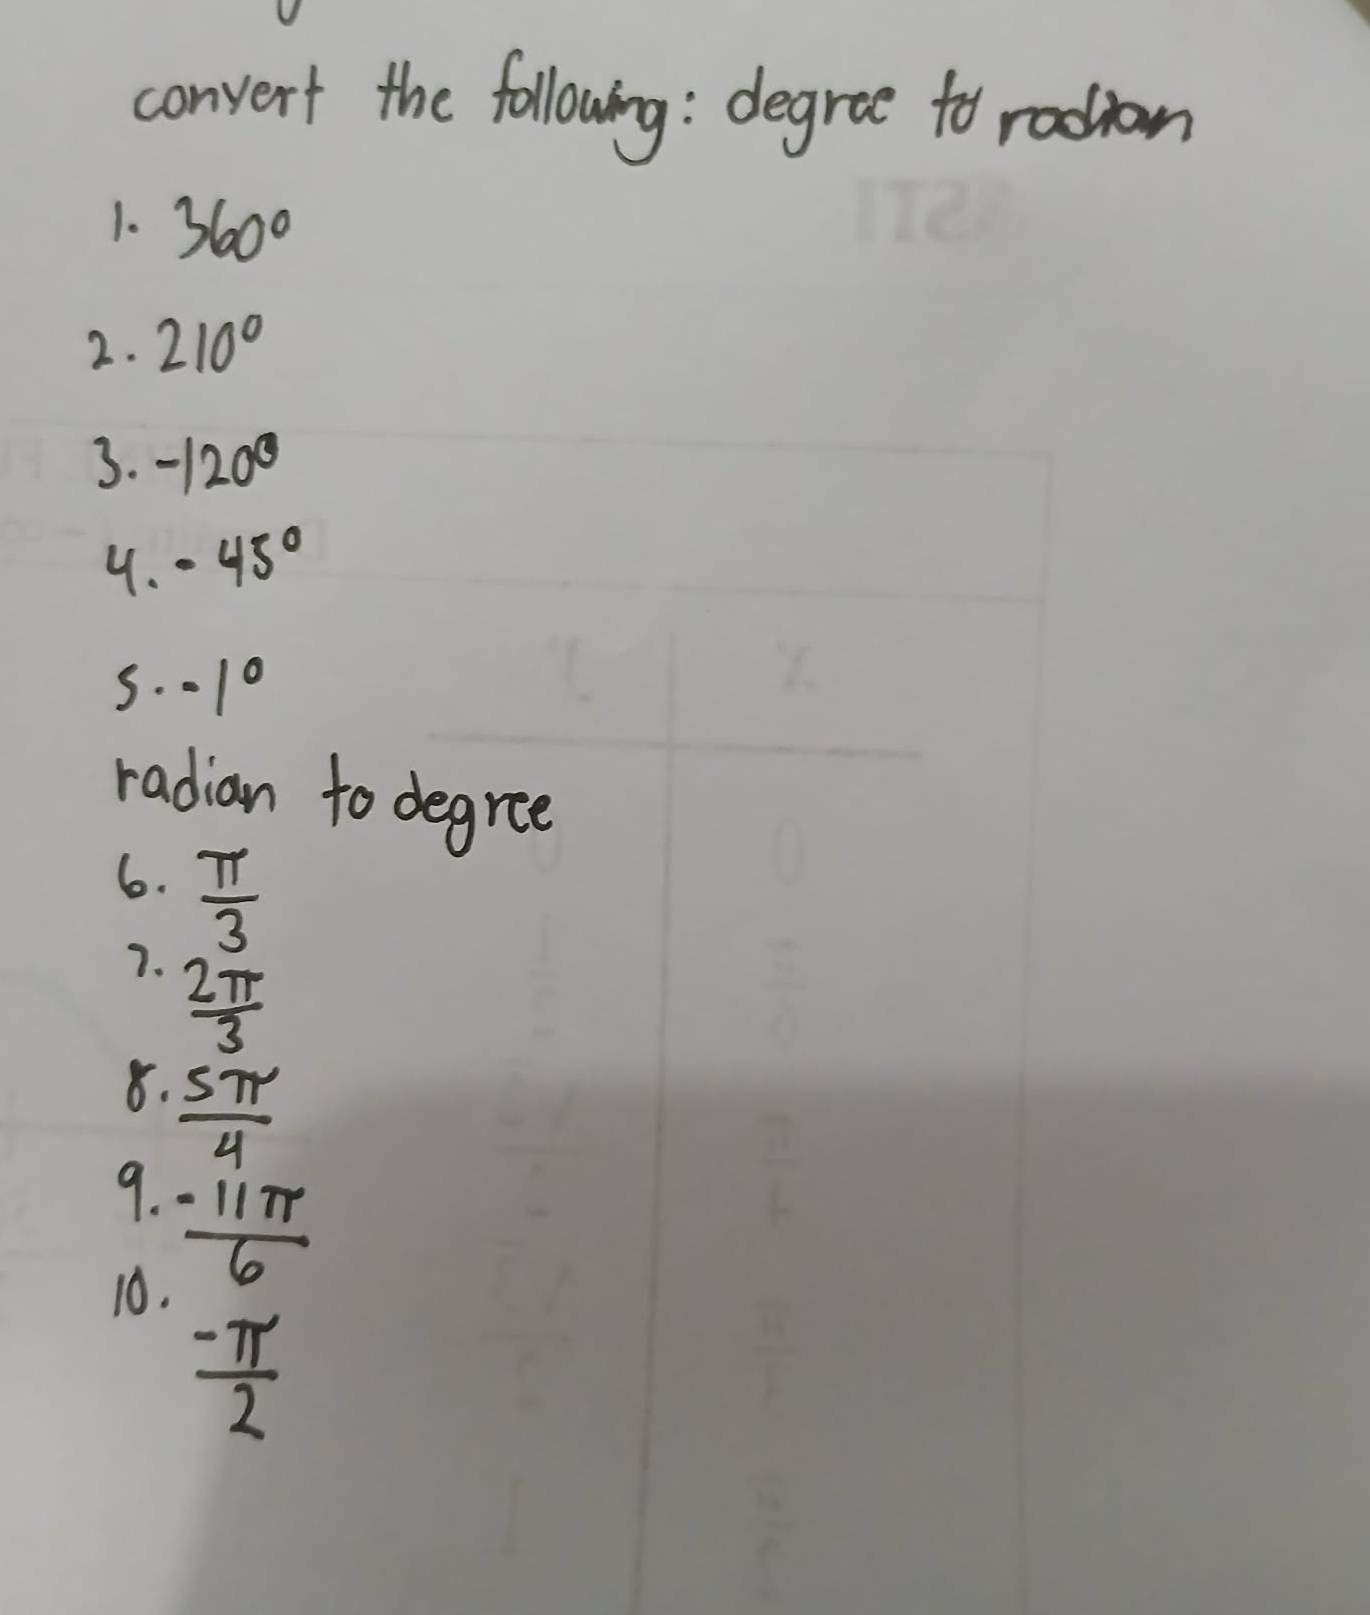 convert the following: degree to radian
1. 360°
2. 210°
3. -120°
4. - 45°
5. -1°
radian to degree
6. π/3
7. 2π/3
8. 5π/4
9. -11π/6
10. -π/2